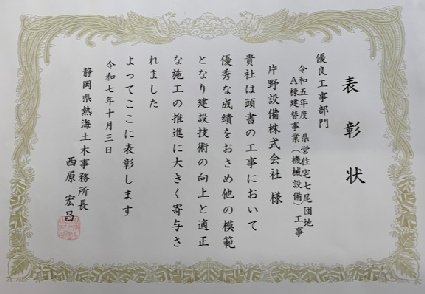 表彰状
優良工事部門
令和五年度　県営住宅七尾団地
A棟建替事業（機械設備）工事
片野設備株式会社 様
貴社は頭書の工事において
優秀な成績をおさめ他の模範
となり建設技術の向上と適正
な施工の推進に大きく寄与さ
れました
よってここに表彰します
令和七年十月三日
静岡県熱海土木事務所長
西原 宏昌